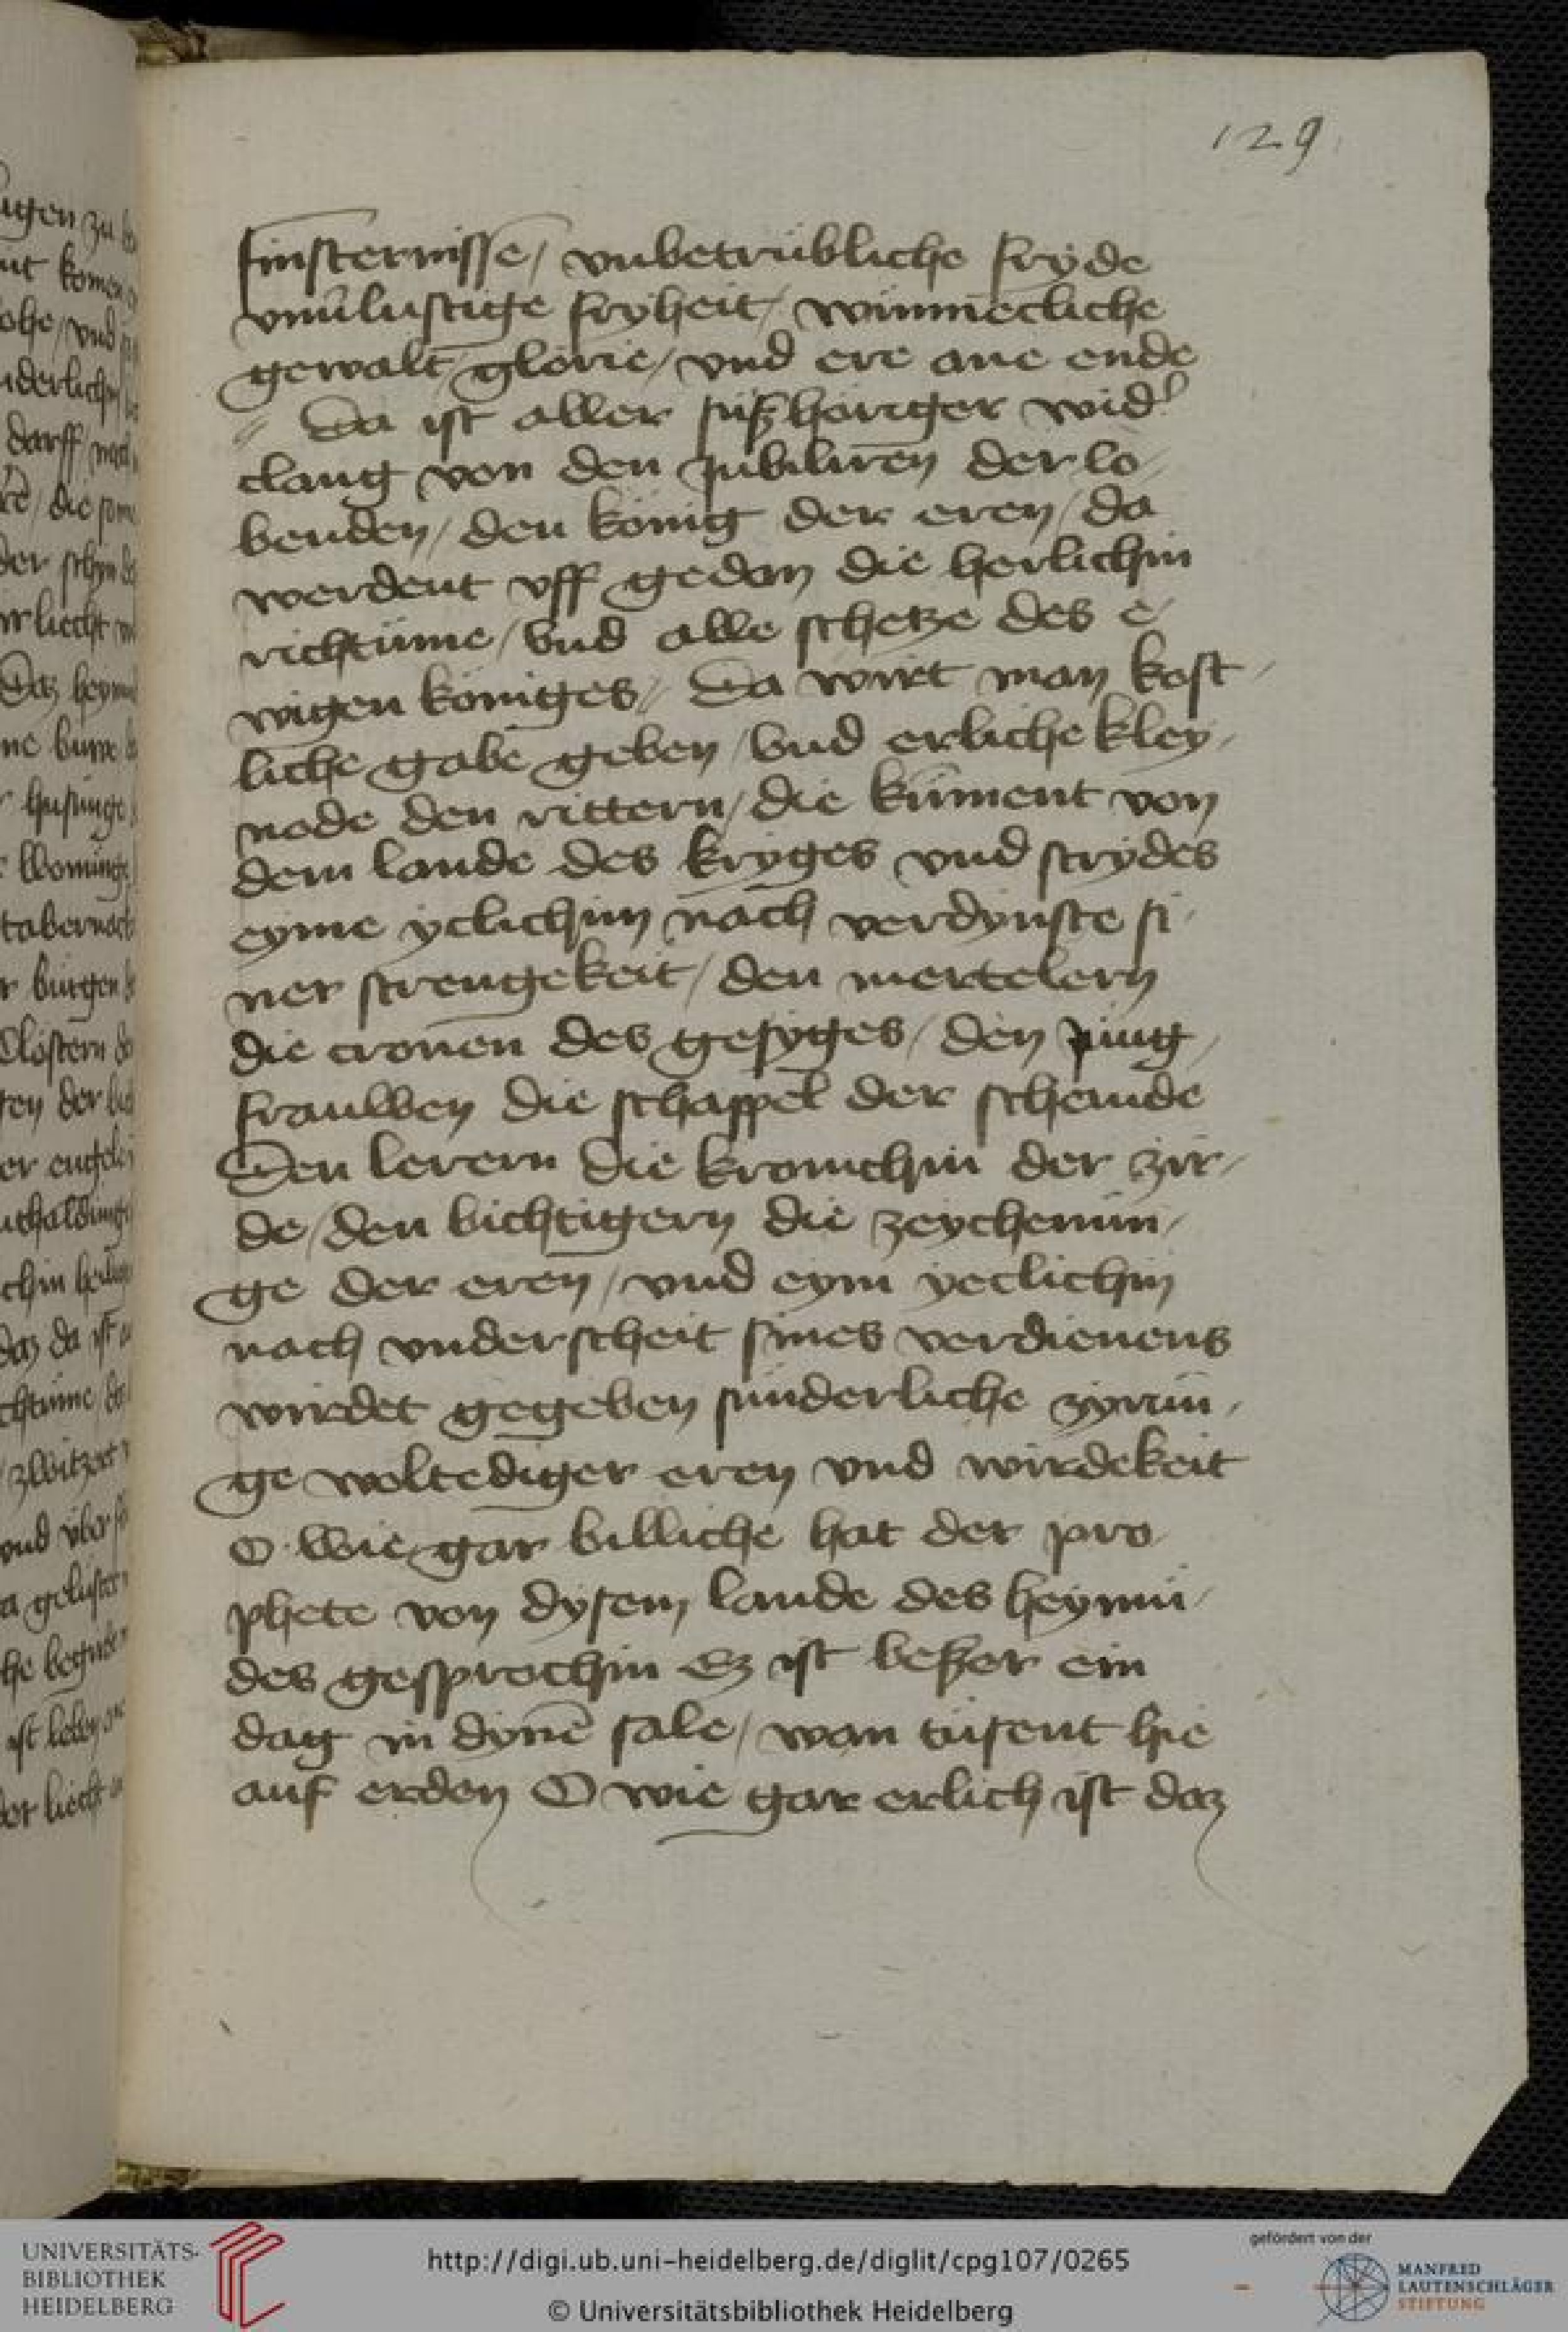 129
finsternisse / vnbetrübliche fryde
vnnlustige fryheit / wünnecliche
gewalt / glorie / vnd ere ane ende
// Da ist aller süßhoriger wid'
clang von den jubiliren der lo-
benden / den könig der eren / da
werdent vff gedan die herlichin
richtüme / vnd alle schetze des e-
wigen königes // Da wirt man kost-
liche gabe geben / vnd erliche kley-
node den rittern / die kument von
dem lande des kryges vnd strydes
eyme yclichim nach verdynste si-
ner strengekeit / den mertelern
die cronen des gesyges / den jung-
frauwen die schappel der scheinde
Den lerern die kronichin der zir-
de / den bichtigern die zeychenun-
ge der eren / vnd eym yeclichin
nach vnderscheit sines verdienens
wirdet gegeben sunderliche zyrun-
ge woltediger eren vnd wirdekeit
O wie gar billiche hat der pro-
phete von dysem lande des heymu-
des gesprochin Ez ist beßer ein
dag in dynē sale / wan tusent hie
auf erden O wie gar erlich ist daz
UNIVERSITÄTS-
BIBLIOTHEK
HEIDELBERG
http://digi.ub.uni-heidelberg.de/diglit/cpg107/0265
© Universitätsbibliothek Heidelberg
gefördert von der
MANFRED
LAUTENSCHLÄGER
STIFTUNG